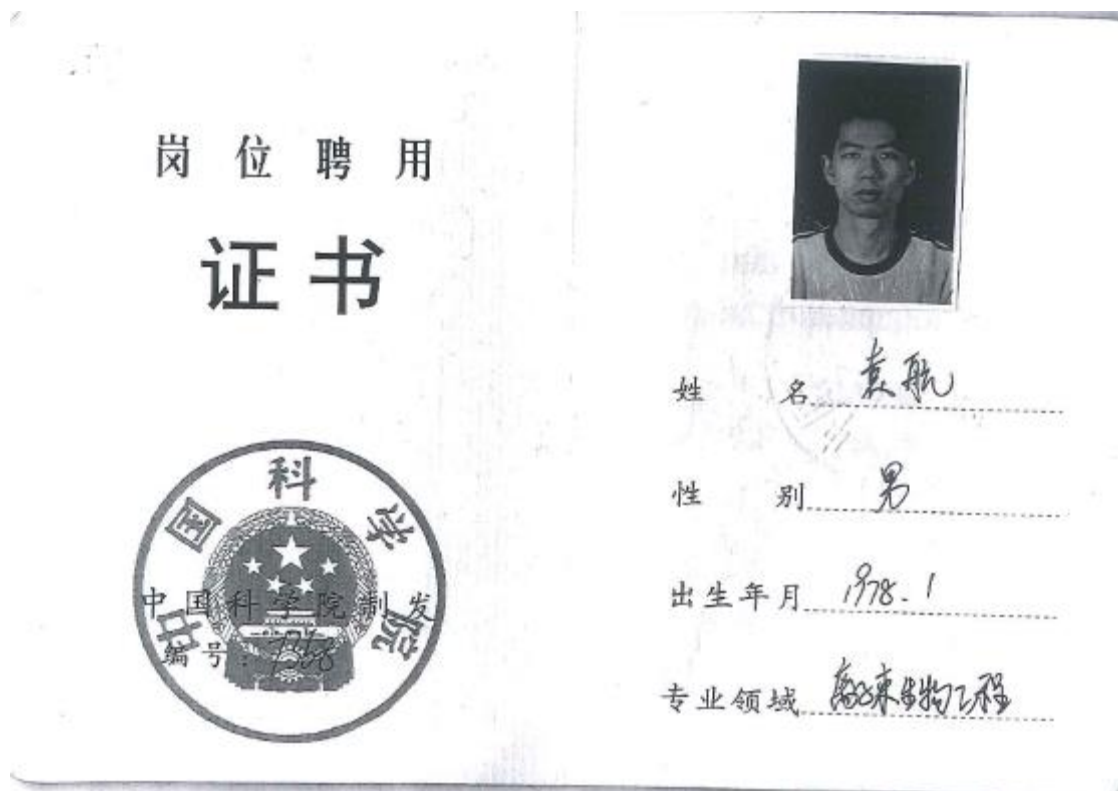 岗位聘用
证书
中国科学院
中国科学院制发
编号:7358
姓 名 袁航
性 别 男
出生年月 1978.1
专业领域 离子束生物工程